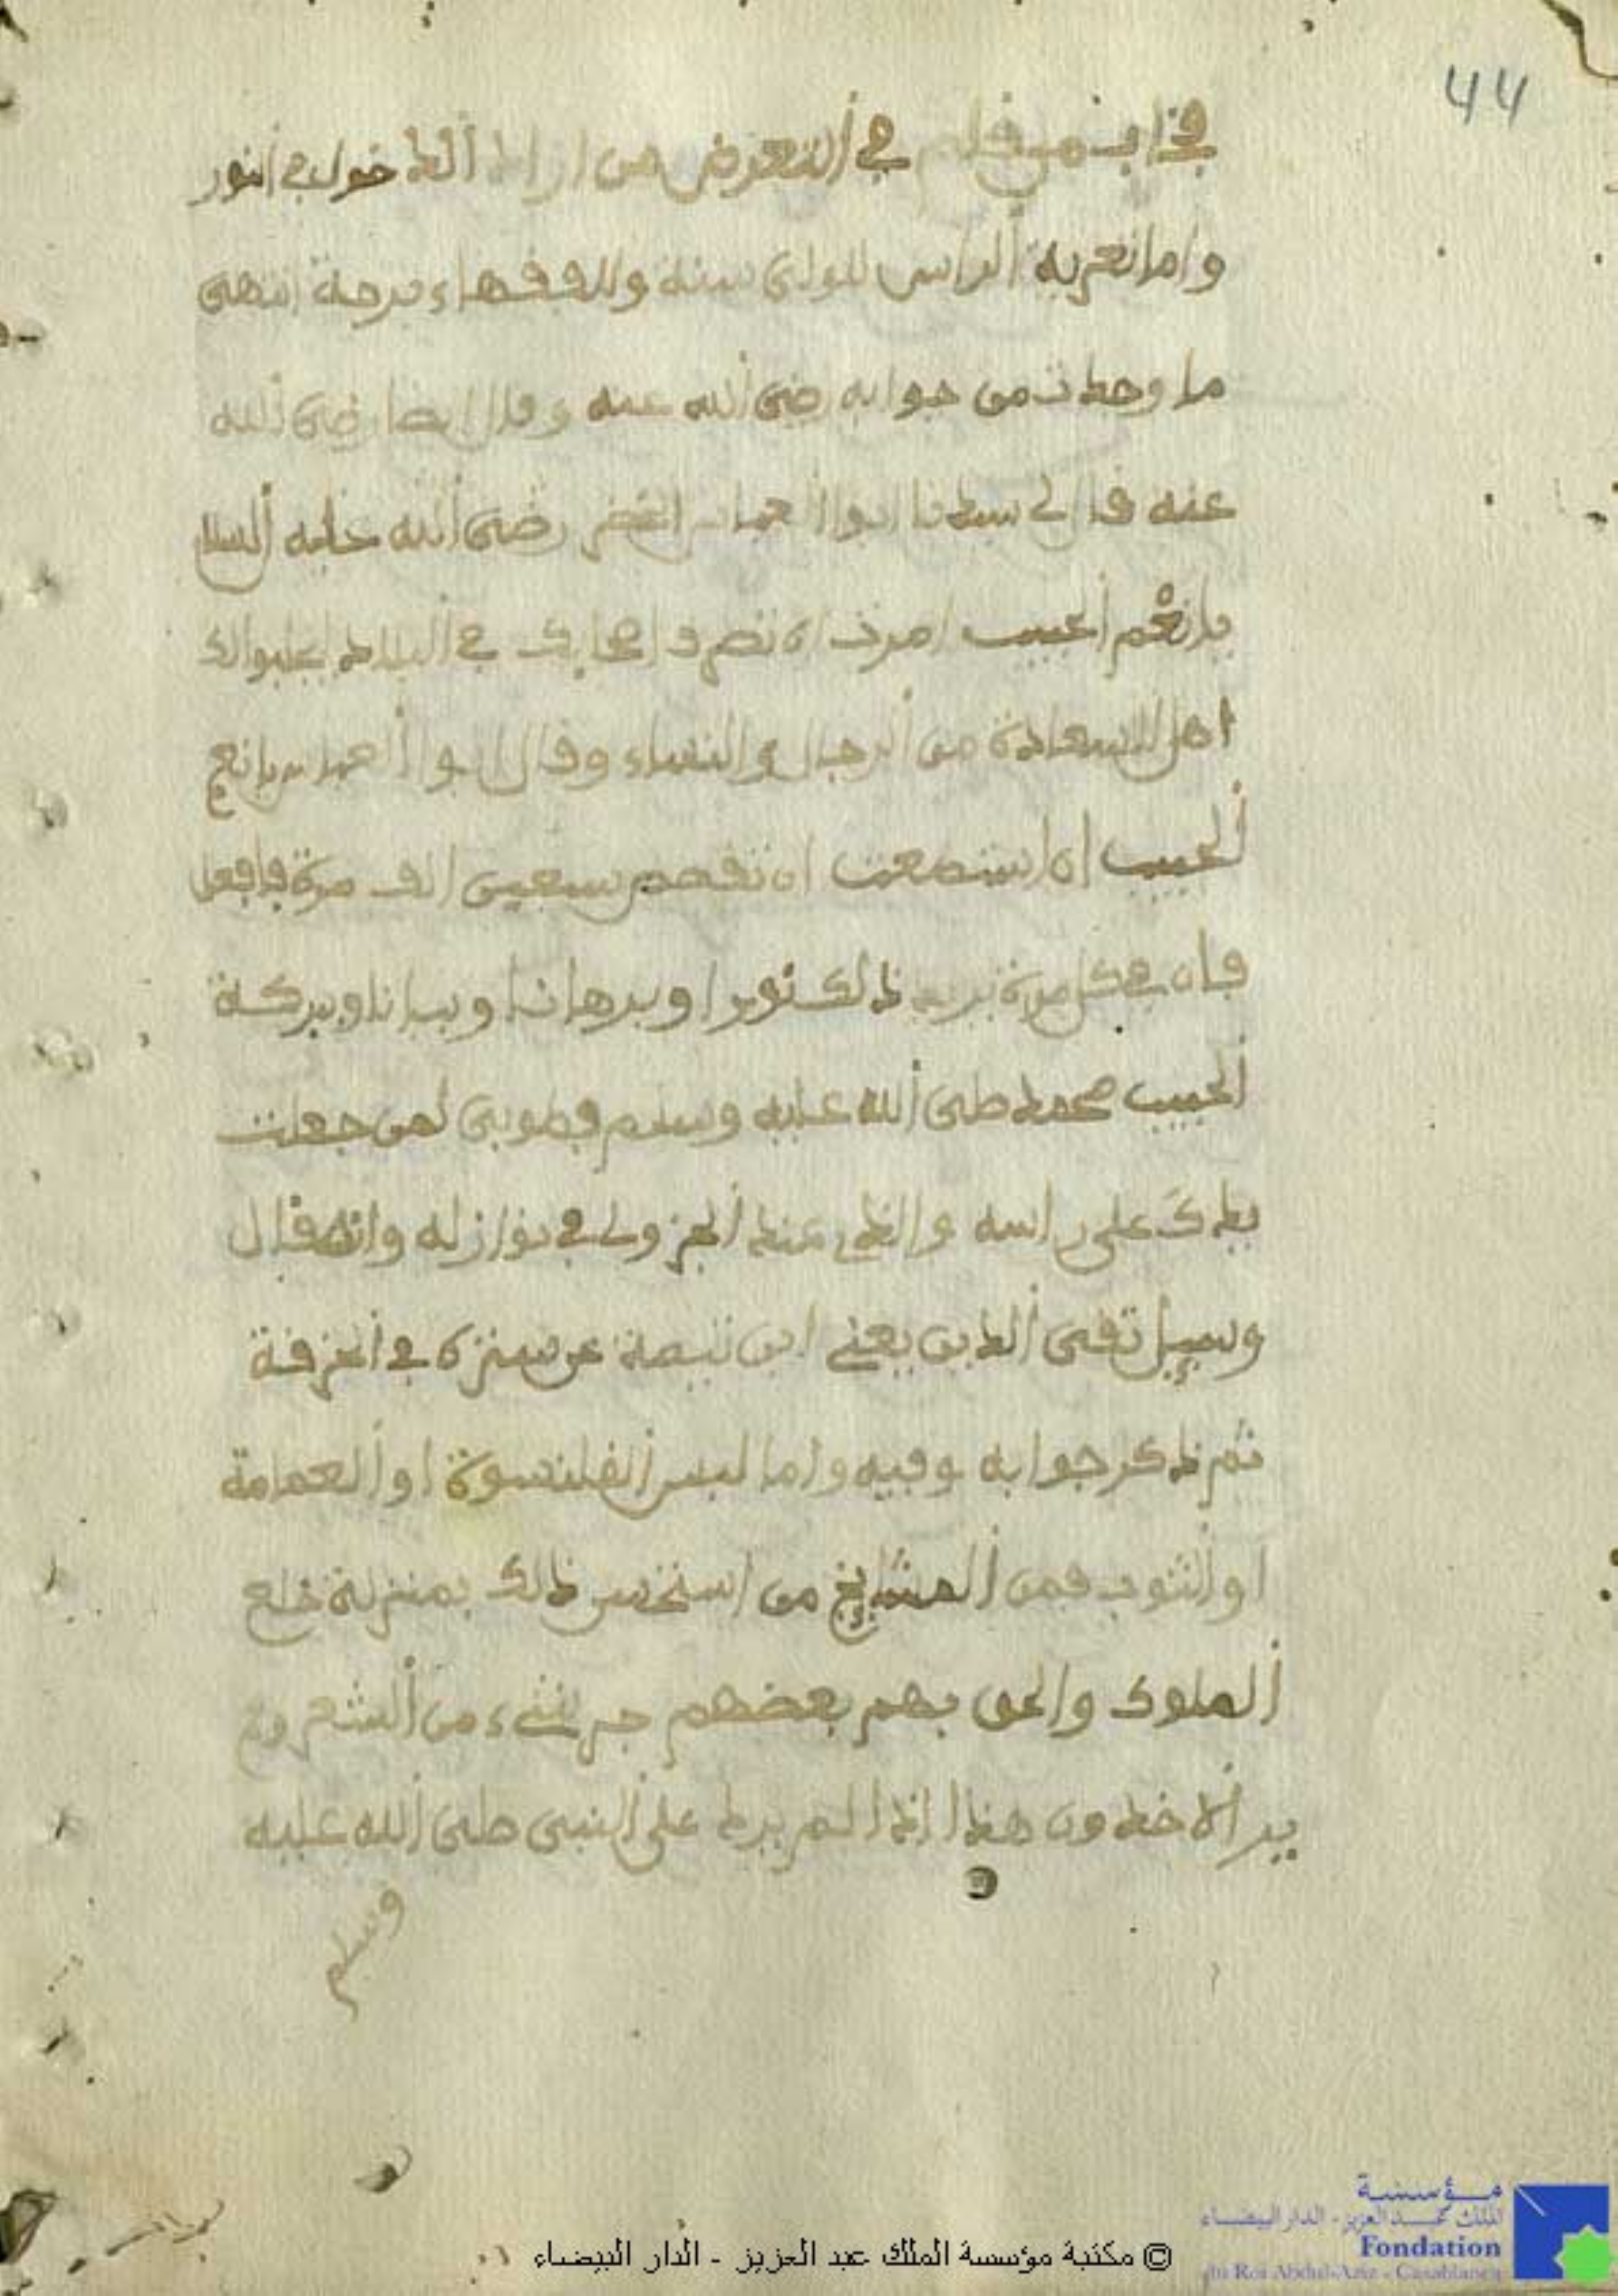 44
في التعرض من اراد الدخول في النور
واما تعرية الراس للولي سنة وللفقهاء فرجة انتهى
ما وجدت من جوابه رضي الله عنه وقال ايضا رضي الله
عنه قال لي سيدنا ابوا العباس الخضر رضي الله عليه السلا
يا نعم الحبيب امرت ان تصرف اصحابك في البلاد يجلبوا لك
اهل السعادة من الرجال والنساء وقال ابوا العباس يا نعم
الحبيب ان استطعت ان سبعين الف مرة فافعل
فان في كل مرة يزيد ذلك نورا وبرهانا وبيانا وببركة
الحبيب محمد صلى الله عليه وسلم فطوبى لمن جعلت
يدك على راسه والذي عند الجزولي في نوازله وانه قال
وسيل تقي الدين يعني ابن تيمية عن في الخرفة
ثم ذكر جوابه وفيه واما لبس القلنسوة او العمامة
او الثوب فمن المشايخ من استحسن ذلك بمنزلة خلع
الملوك والحق بهم بعضهم جز شيء من الشعر ولم
ير الاخذون هذا اذا لم يرد على النبي صلى الله عليه
وسلم
© مكتبة مؤسسة الملك عبد العزيز - الدار البيضاء
مؤسسة
الملك عبد العزيز - الدار البيضاء
Fondation
du Roi Abdul-Aziz - Casablanca